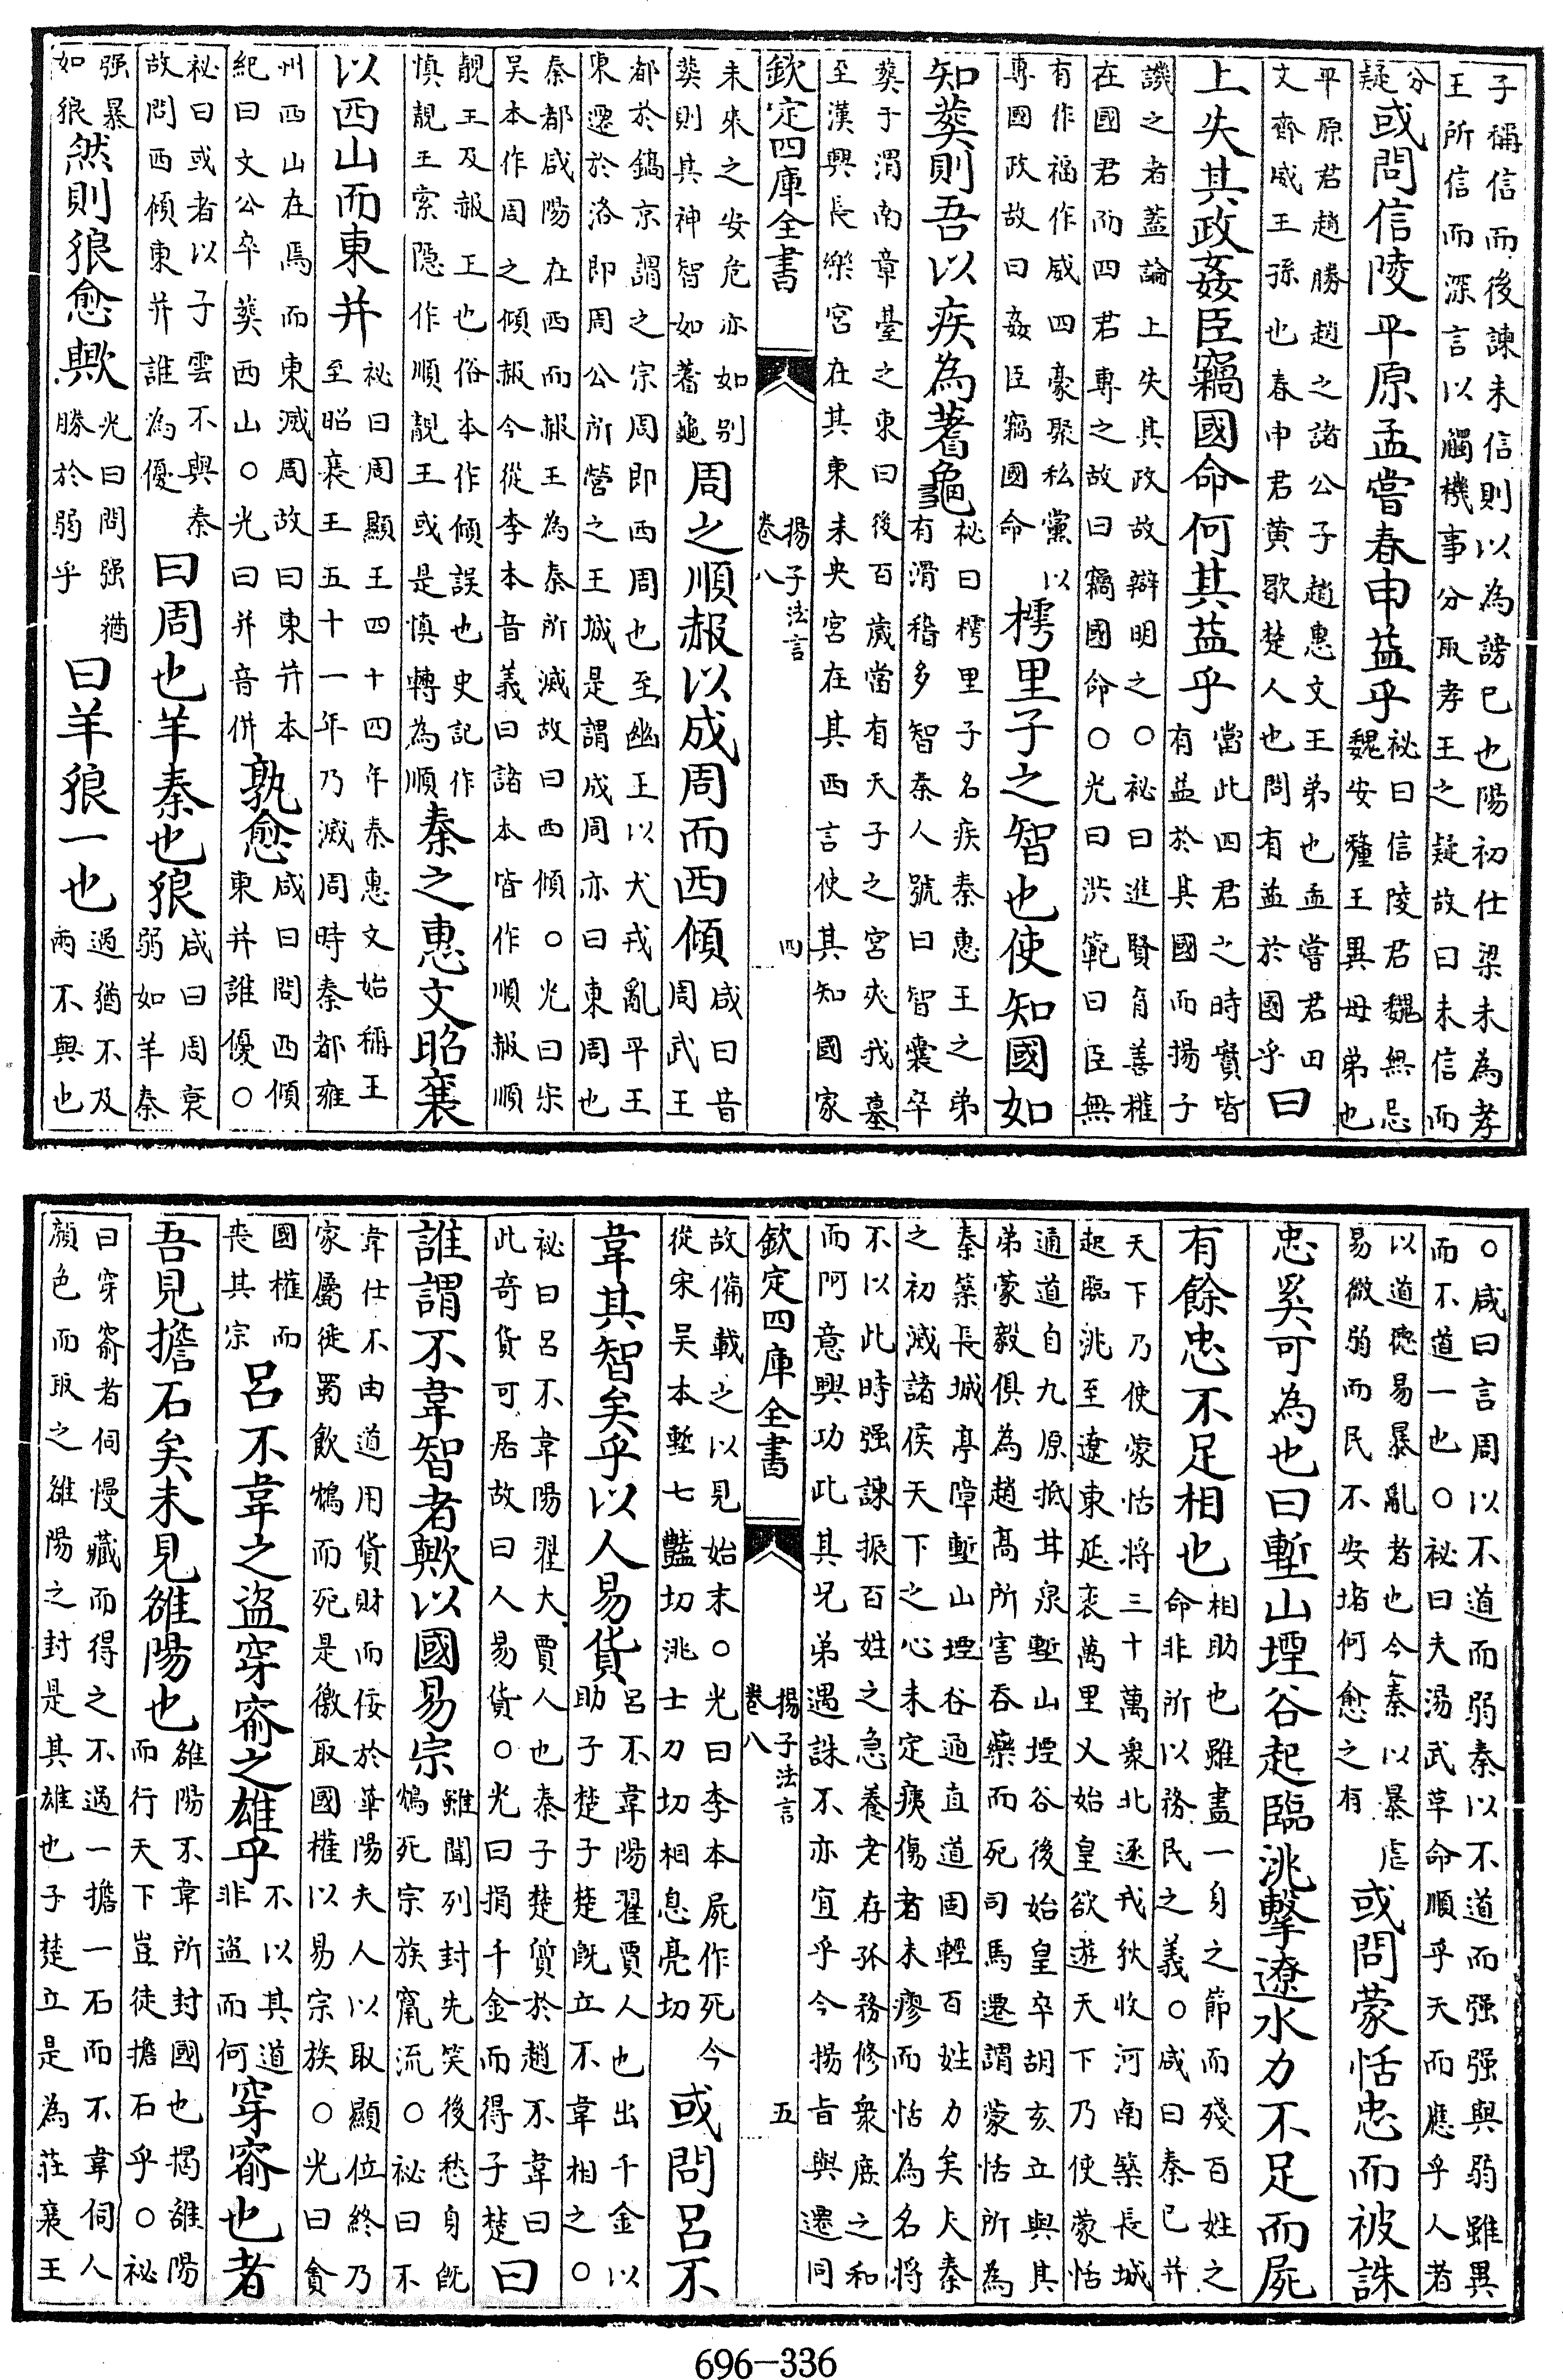 子稱信而後諫未信則以為謗已也陽初仕梁未為孝
王所信而深言以觸機事分取孝王之疑故曰未信而
分疑或問信陵平原孟嘗春申益乎祕曰信陵君魏無忌魏安釐王異母弟也
平原君趙勝趙之諸公子趙惠文王弟也孟嘗君田文齊威王孫也春申君黃歇楚人也問有益於國乎曰
上失其政姦臣竊國命何其益乎當此四君之時實皆有益於其國而揚子
譏之者蓋論上失其政故辯明之○祕曰進賢育善權
在國君而四君專之故曰竊國命○光曰洪範曰臣無
有作福作威四豪聚私黨以專國政故曰姦臣竊國命樗里子之智也使知國如
知葬則吾以疾為蓍龜祕曰樗里子名疾秦惠王之弟有滑稽多智秦人號曰智囊卒
葬于渭南章臺之東曰後百歲當有天子之宮夾我墓
至漢興長樂宮在其東未央宮在其西言使其知國家
欽定四庫全書 揚子法言 卷八 四
未來之安危亦如别葬則其神智如蓍龜周之順赧以成周而西傾咸曰昔周武王
都於鎬京謂之宗周即西周也至幽王以犬戎亂平王
東遷於洛即周公所營之王城是謂成周亦曰東周也
秦都咸陽在西而赧王為秦所滅故曰西傾○光曰宋
吳本作周之傾赧今從李本音義曰諸本皆作順赧順
靚王及赧王也俗本作傾誤也史記作慎靚王索隱作順靚王或是慎轉為順秦之惠文昭襄
以西山而東并祕曰周顯王四十四年秦惠文始稱王至昭襄王五十一年乃滅周時秦都雍
州西山在焉而東滅周故曰東并本紀曰文公卒葬西山○光曰并音併孰愈咸曰問西傾東并誰優○
祕曰或者以子雲不與秦故問西傾東并誰為優曰周也羊秦也狼咸曰周衰弱如羊秦
强暴如狼然則狼愈歟光曰問强猶勝於弱乎曰羊狼一也過猶不及兩不與也
○咸曰言周以不道而弱秦以不道而强强與弱雖異
而不道一也○祕曰夫湯武革命順乎天而應乎人者
以道德易暴亂者也今秦以暴虐易微弱而民不安堵何愈之有或問蒙恬忠而被誅
忠奚可為也曰塹山堙谷起臨洮擊遼水力不足而屍
有餘忠不足相也相助也雖盡一身之節而殘百姓之命非所以務民之義○咸曰秦已并
天下乃使蒙恬將三十萬衆北逐戎狄收河南築長城
起臨洮至遼東延袤萬里又始皇欲遊天下乃使蒙恬
通道自九原抵甘泉塹山堙谷後始皇卒胡亥立與其
弟蒙毅俱為趙高所害吞藥而死司馬遷謂蒙恬所為
秦築長城亭障塹山堙谷通直道固輕百姓力矣夫秦
之初滅諸侯天下之心未定痍傷者未瘳而恬為名將
不以此時强諫振百姓之急養老存孤務修衆庶之和
而阿意興功此其兄弟遇誅不亦宜乎今揚旨與遷同
欽定四庫全書 揚子法言 卷八 五
故備載之以見始末○光曰李本屍作死今從宋吳本塹七豔切洮士刀切相息亮切或問呂不
韋其智矣乎以人易貨呂不韋陽翟賈人也出千金以助子楚子楚既立不韋相之○
祕曰呂不韋陽翟大賈人也秦子楚質於趙不韋曰此奇貨可居故曰人易貨○光曰捐千金而得子楚曰
誰謂不韋智者歟以國易宗雖聞列封先笑後愁身既鴆死宗族竄流○祕曰不
韋仕不由道用貨財而佞於華陽夫人以取顯位終乃
家屬徙蜀飲鴆而死是徼取國權以易宗族○光曰貪
國權而喪其宗呂不韋之盜穿窬之雄乎不以其道非盜而何穿窬也者
吾見擔石矣未見雒陽也雒陽不韋所封國也揭雒陽而行天下豈徒擔石乎○祕
曰穿窬者伺慢藏而得之不過一擔一石而不韋伺人
顏色而取之雒陽之封是其雄也子楚立是為莊襄王
696-336